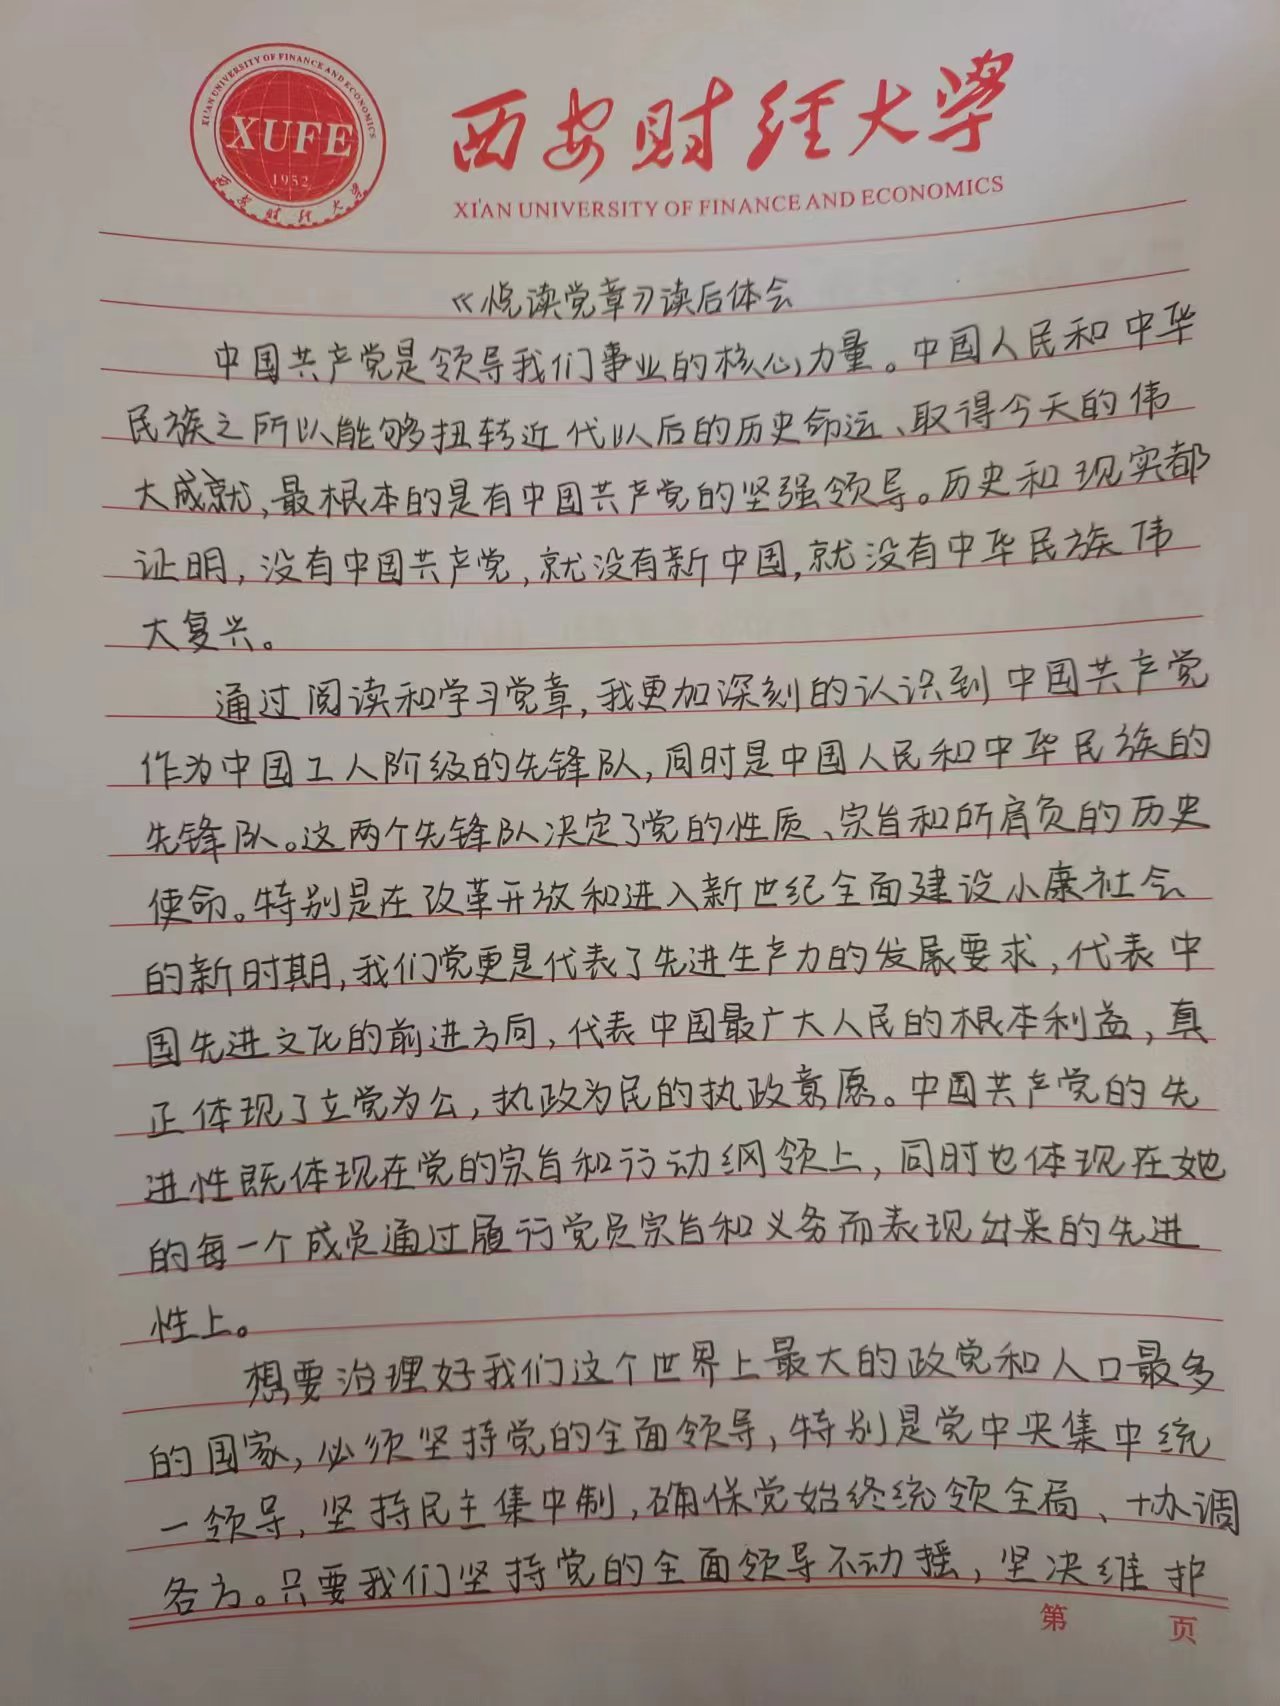 XI'AN UNIVERSITY OF FINANCE AND ECONOMICS
XUFE
1952
西安财经大学
西安财经大学
XI'AN UNIVERSITY OF FINANCE AND ECONOMICS
《悦读党章》读后体会
中国共产党是领导我们事业的核心力量。中国人民和中华
民族之所以能够扭转近代以后的历史命运、取得今天的伟
大成就,最根本的是有中国共产党的坚强领导。历史和现实都
证明,没有中国共产党,就没有新中国,就没有中华民族伟
大复兴。
通过阅读和学习党章,我更加深刻的认识到中国共产党
作为中国工人阶级的先锋队,同时是中国人民和中华民族的
先锋队。这两个先锋队决定了党的性质、宗旨和所肩负的历史
使命。特别是在改革开放和进入新世纪全面建设小康社会
的新时期,我们党更是代表了先进生产力的发展要求,代表中
国先进文化的前进方向,代表中国最广大人民的根本利益,真
正体现了立党为公,执政为民的执政意愿。中国共产党的先
进性既体现在党的宗旨和行动纲领上,同时也体现在她
的每一个成员通过履行党员宗旨和义务而表现出来的先进
性上。
想要治理好我们这个世界上最大的政党和人口最多
的国家,必须坚持党的全面领导,特别是党中央集中统
一领导,坚持民主集中制,确保党始终统领全局、协调
各方。只要我们坚持党的全面领导不动摇,坚决维护
第 页